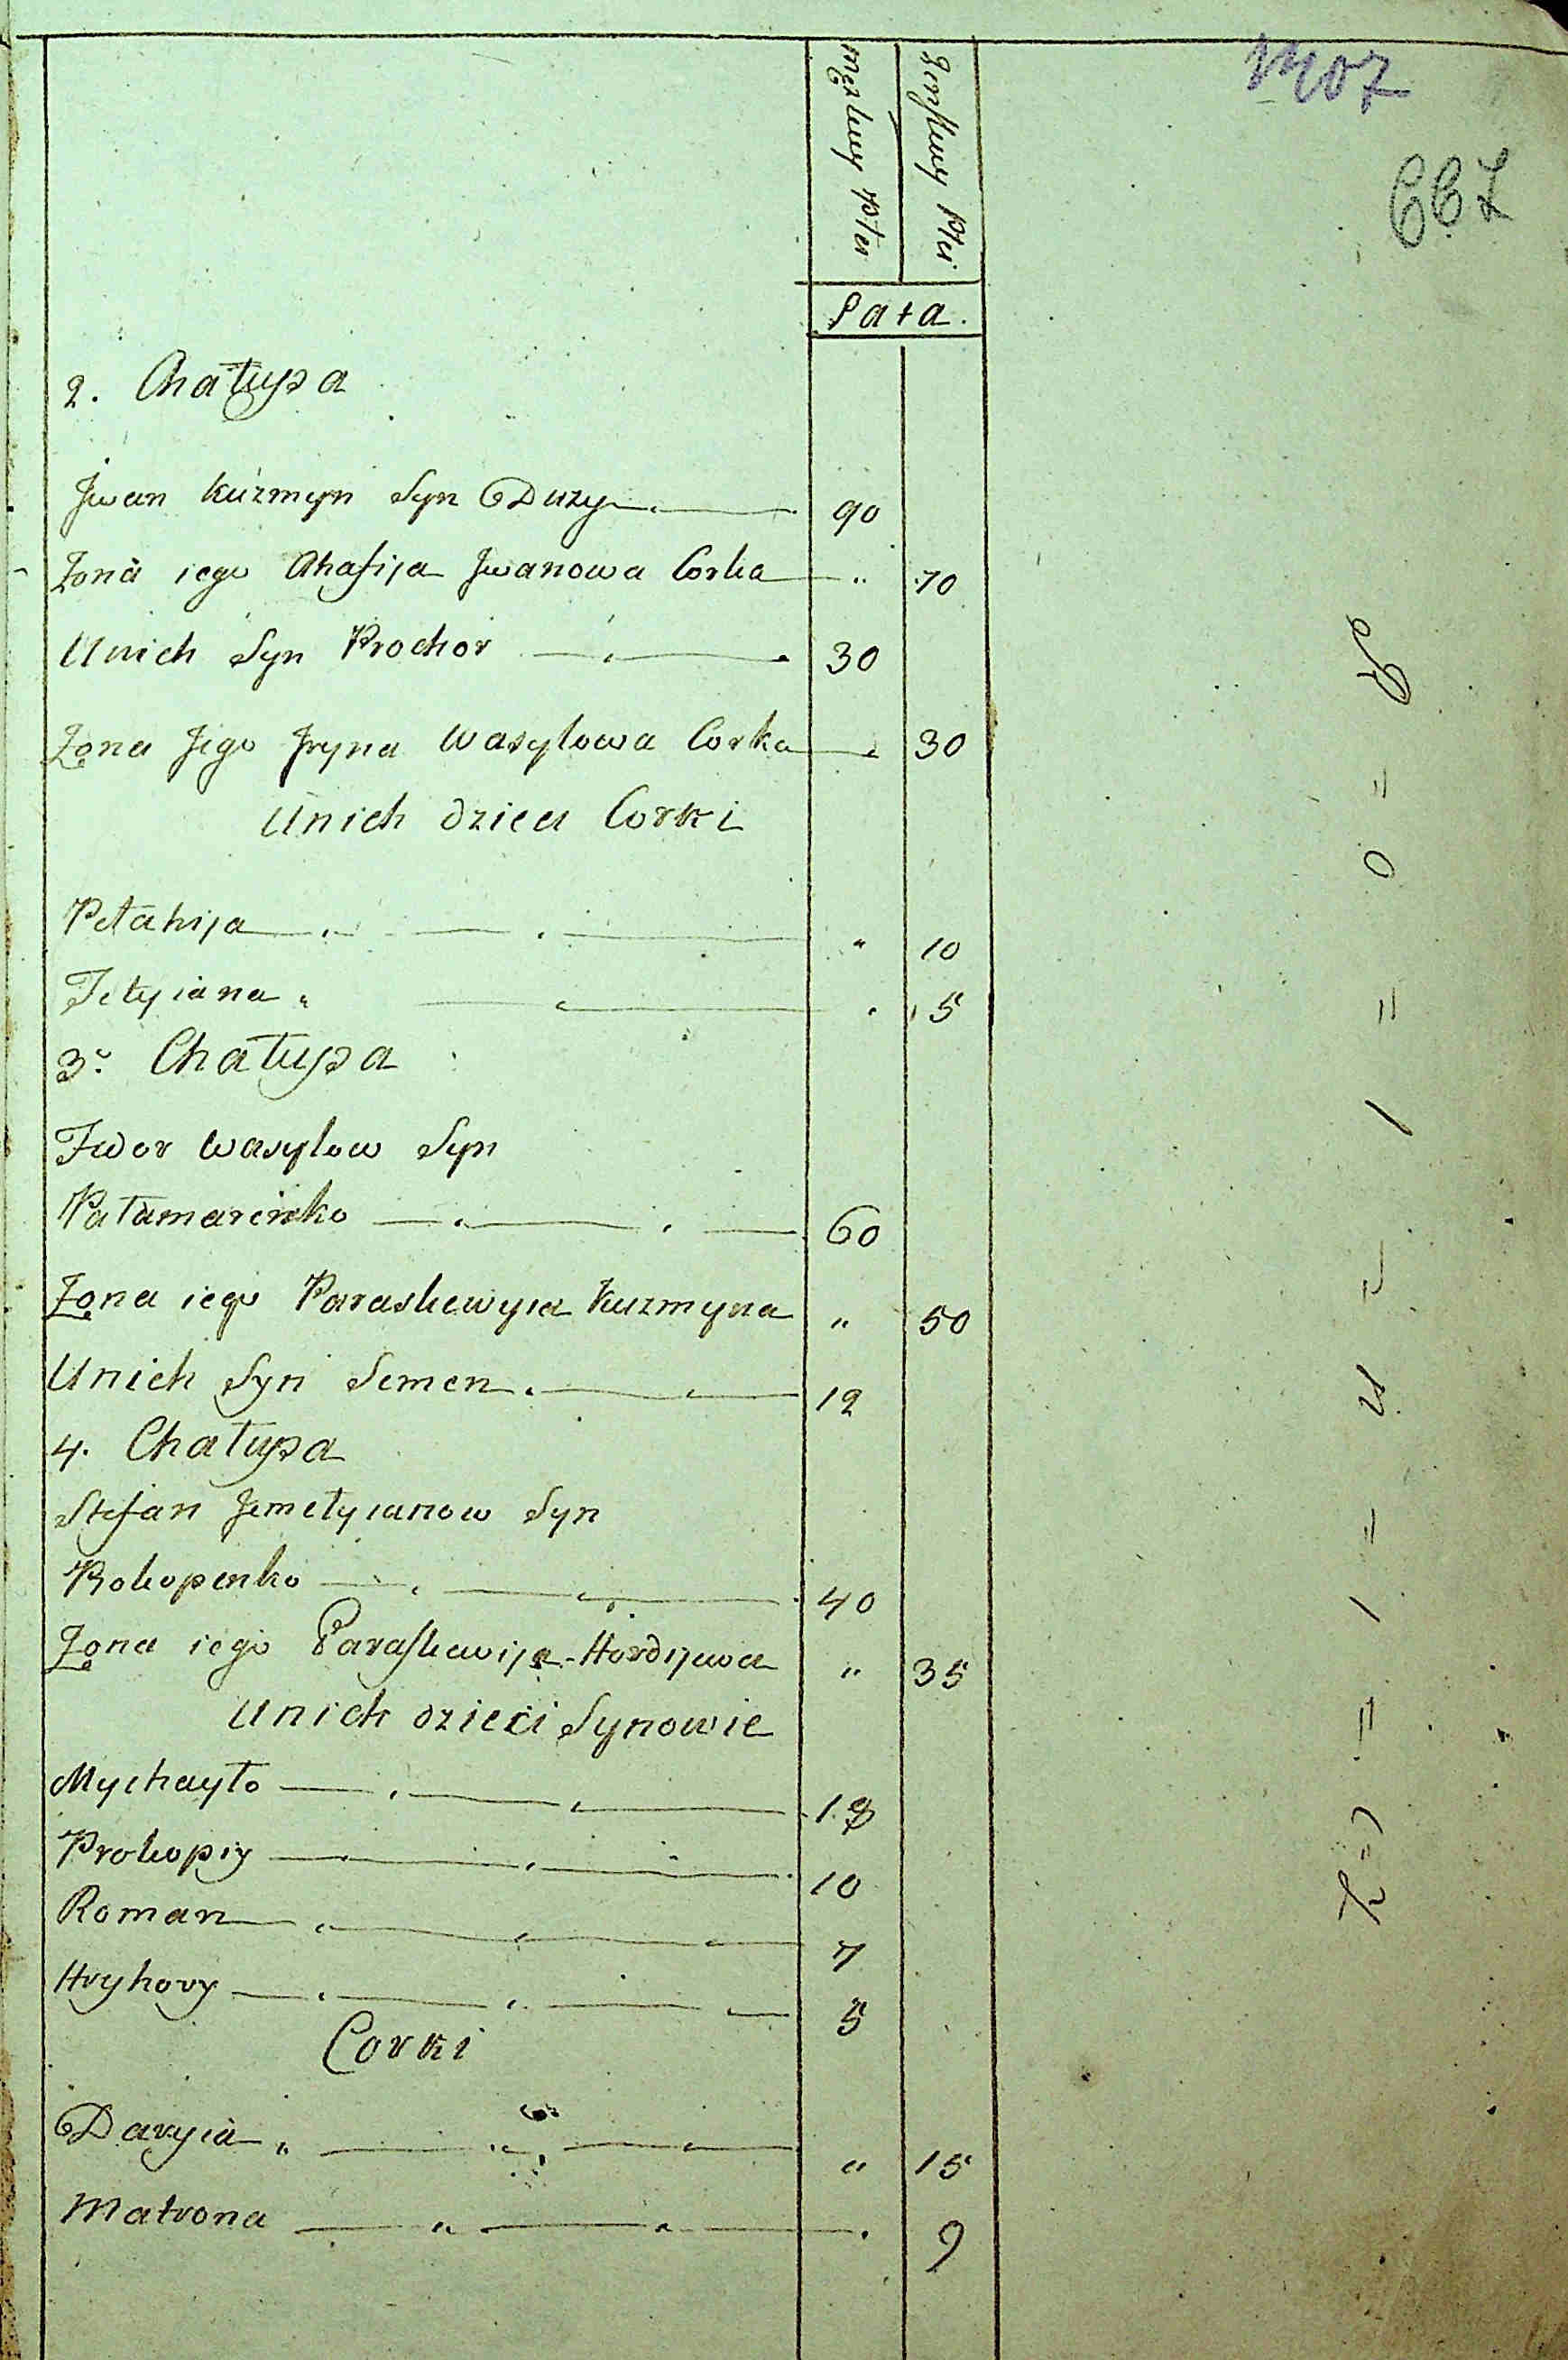 1407
667
męzkiey Płci
Żenskiey Płci
Lata.
2. Chałupa
Jwan Kuzmyn Syn Duzy 90
Żona iego Ahafija Jwanowa Corka " 70
Unich Syn Prochor 30
Żona Jego Jryna Wasylowa Corka 30
Unich dzieci Corki
Pełahija " 10
Tetyiana " 5
3. Chałupa
Fedor Wasylow Syn
Pałamarenko 60
Żona iego Paraskewyia Kuzmyna " 50
Unich Syn Semen 12
4. Chałupa
Stefan Jemełyianow Syn
Prokopenko 40
Żona iego Paraskewija Hordijewa " 35
Unich dzieci Synowie
Mychayło 18
Prokopiy 10
Roman 7
Hryhory 5
Corki
Daryia " 15
Matrona 9